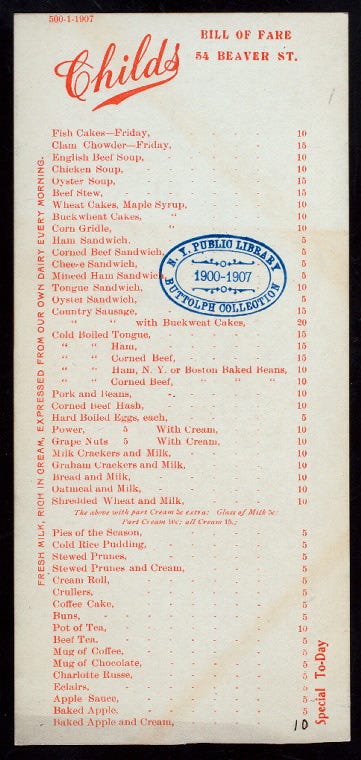 500-1-1907
Childs
BILL OF FARE
54 BEAVER ST.
Fish Cakes—Friday, 10
Clam Chowder—Friday, 15
English Beef Soup, 10
Chicken Soup, 10
Oyster Soup, 15
Beef Stew, 15
Wheat Cakes, Maple Syrup, 10
Buckwheat Cakes, " 10
Corn Griddle, " 10
Ham Sandwich, 5
Corned Beef Sandwich, 5
Cheese Sandwich, 5
Minced Ham Sandwich, 5
Tongue Sandwich, 10
Oyster Sandwich, 5
Country Sausage, 15
" " with Buckweat Cakes, 20
Cold Boiled Tongue, 15
" " Ham, 15
" " Corned Beef, 15
" " Ham, N. Y. or Boston Baked Beans, 10
" " Corned Beef, " " " 10
Pork and Beans, 10
Corned Beef Hash, 10
Hard Boiled Eggs, each, 5
Power, 5 With Cream, 10
Grape Nuts 5 With Cream, 10
Milk Crackers and Milk, 10
Graham Crackers and Milk, 10
Bread and Milk, 10
Oatmeal and Milk, 10
Shredded Wheat and Milk, 10
The above with part Cream 5c extra: Glass of Milk 5c:
Part Cream 10c; all Cream 15,;
Pies of the Season, 5
Cold Rice Pudding, 5
Stewed Prunes, 5
Stewed Prunes and Cream, 5
Cream Roll, 5
Crullers, 5
Coffee Cake, 5
Buns, 5
Pot of Tea, 10
Beef Tea. 5
Mug of Coffee, 5
Mug of Chocolate, 5
Charlotte Russe, 5
Eclairs, 5
Apple Sauce, 5
Baked Apple, 5
Baked Apple and Cream, 10
FRESH MILK, RICH IN CREAM, EXPRESSED FROM OUR OWN DAIRY EVERY MORNING.
Special To-Day
N. Y. PUBLIC LIBRARY
1900-1907
BUTTOLPH COLLECTION